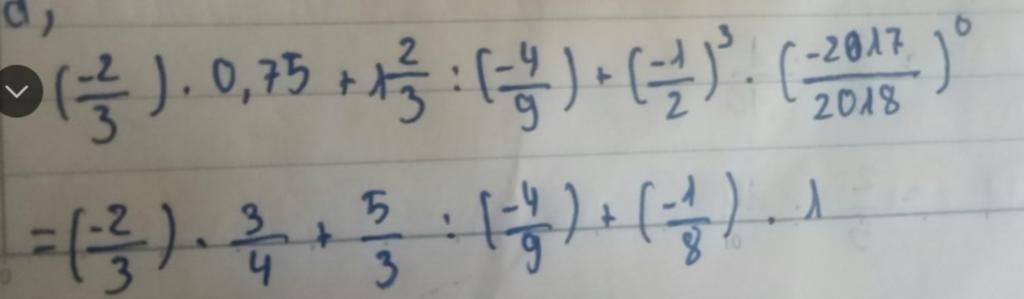 a,
(-2/3) . 0,75 + 1 2/3 : (-4/9) + (-1/2)^3 . (-2017/2018)^0
= (-2/3) . 3/4 + 5/3 : (-4/9) + (-1/8) . 1